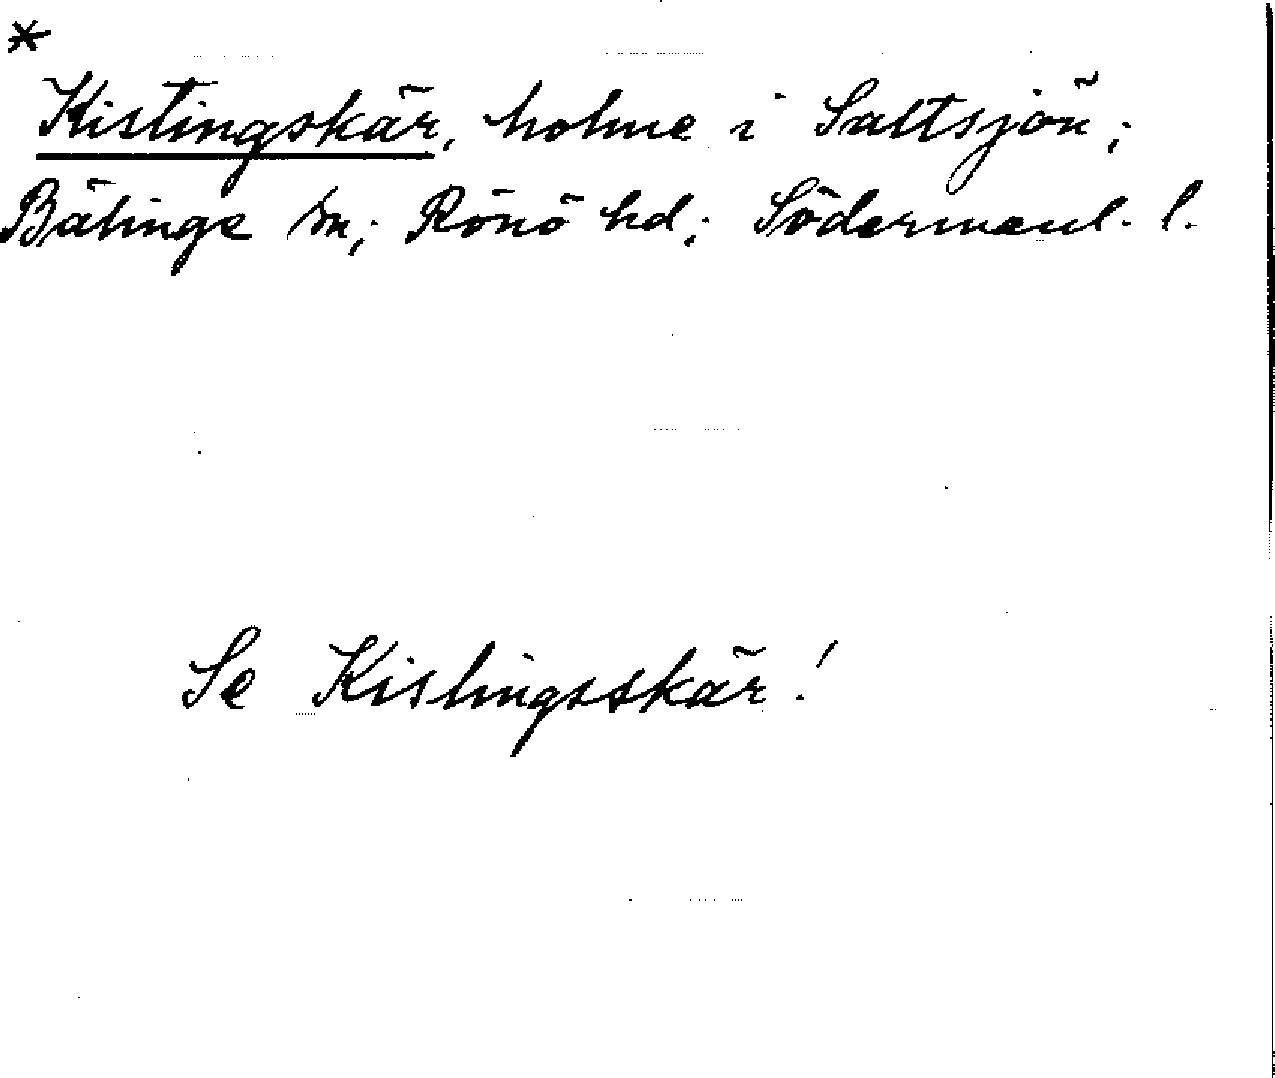 *
Kistingskär, holme i Saltsjön;
Bälinge sn; Rönö hd; Södermanl. l.
Se Kislingsskär!